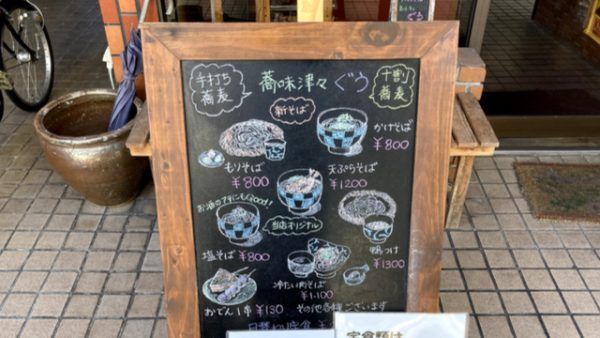 手打ち
蕎麦
蕎味津々 ぐう
十割
蕎麦
新そば
もりそば
¥800
かけそば
¥800
天ぷらそば
¥1200
お酒のアテにもGood!
当店オリジナル
塩そば
¥800
鴨つけ
¥1300
冷たい肉そば
¥1100
おでん1串 ¥130
その他各種ございます
日替わり定食
定食類は